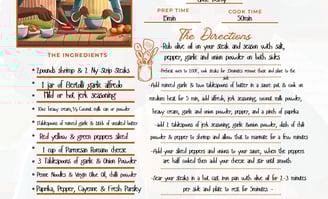 PREP TIME
15min
COOK TIME
50min
The Directions
-Rub olive oil on your steak and season with salt,
pepper, garlic and onion powder on both sides
Preheat oven to 200F, cook steaks for 30minutes remove them and place to the
side
-Add minced garlic & two tablespoons of butter in a sauce pot & cook on
medium heat for 5 min, add alfredo, jerk seasoning, coconut milk powder,
heavy cream, garlic and onion powder, pepper, and a pinch of paprika
-add 2 tablespoons of jerk seasoning, garlic &onion powder, dash of chili
powder & pepper to shrimp and allow that to marinate for a few minutes
-Add your sliced peppers and onions to your sauce, when the peppers
are half cooked then add your cheese and stir until smooth
-Sear your steaks in a hot cast iron pan with olive oil for 2-3 minutes
per side and plate to rest for 5minutes -
THE INGREDIENTS
• 2pounds shrimp & 2 Ny Strip Steaks
• 1 jar of Bertolli garlic alfredo
Mild or hot jerk seasoning
• 16oz heavy cream, ½ Coconut milk can or powder
• 2tablespoons of minced garlic & 1stick of unsalted butter
• Red, yellow & green peppers sliced
• 1 cup of Parmesan Romano cheese
• 3 Tablespoons of garlic & Onion Powder
• Penne Noodles & Virgin Olive Oil, chilli powder
• Paprika, Pepper, Cayenne & Fresh Parsley